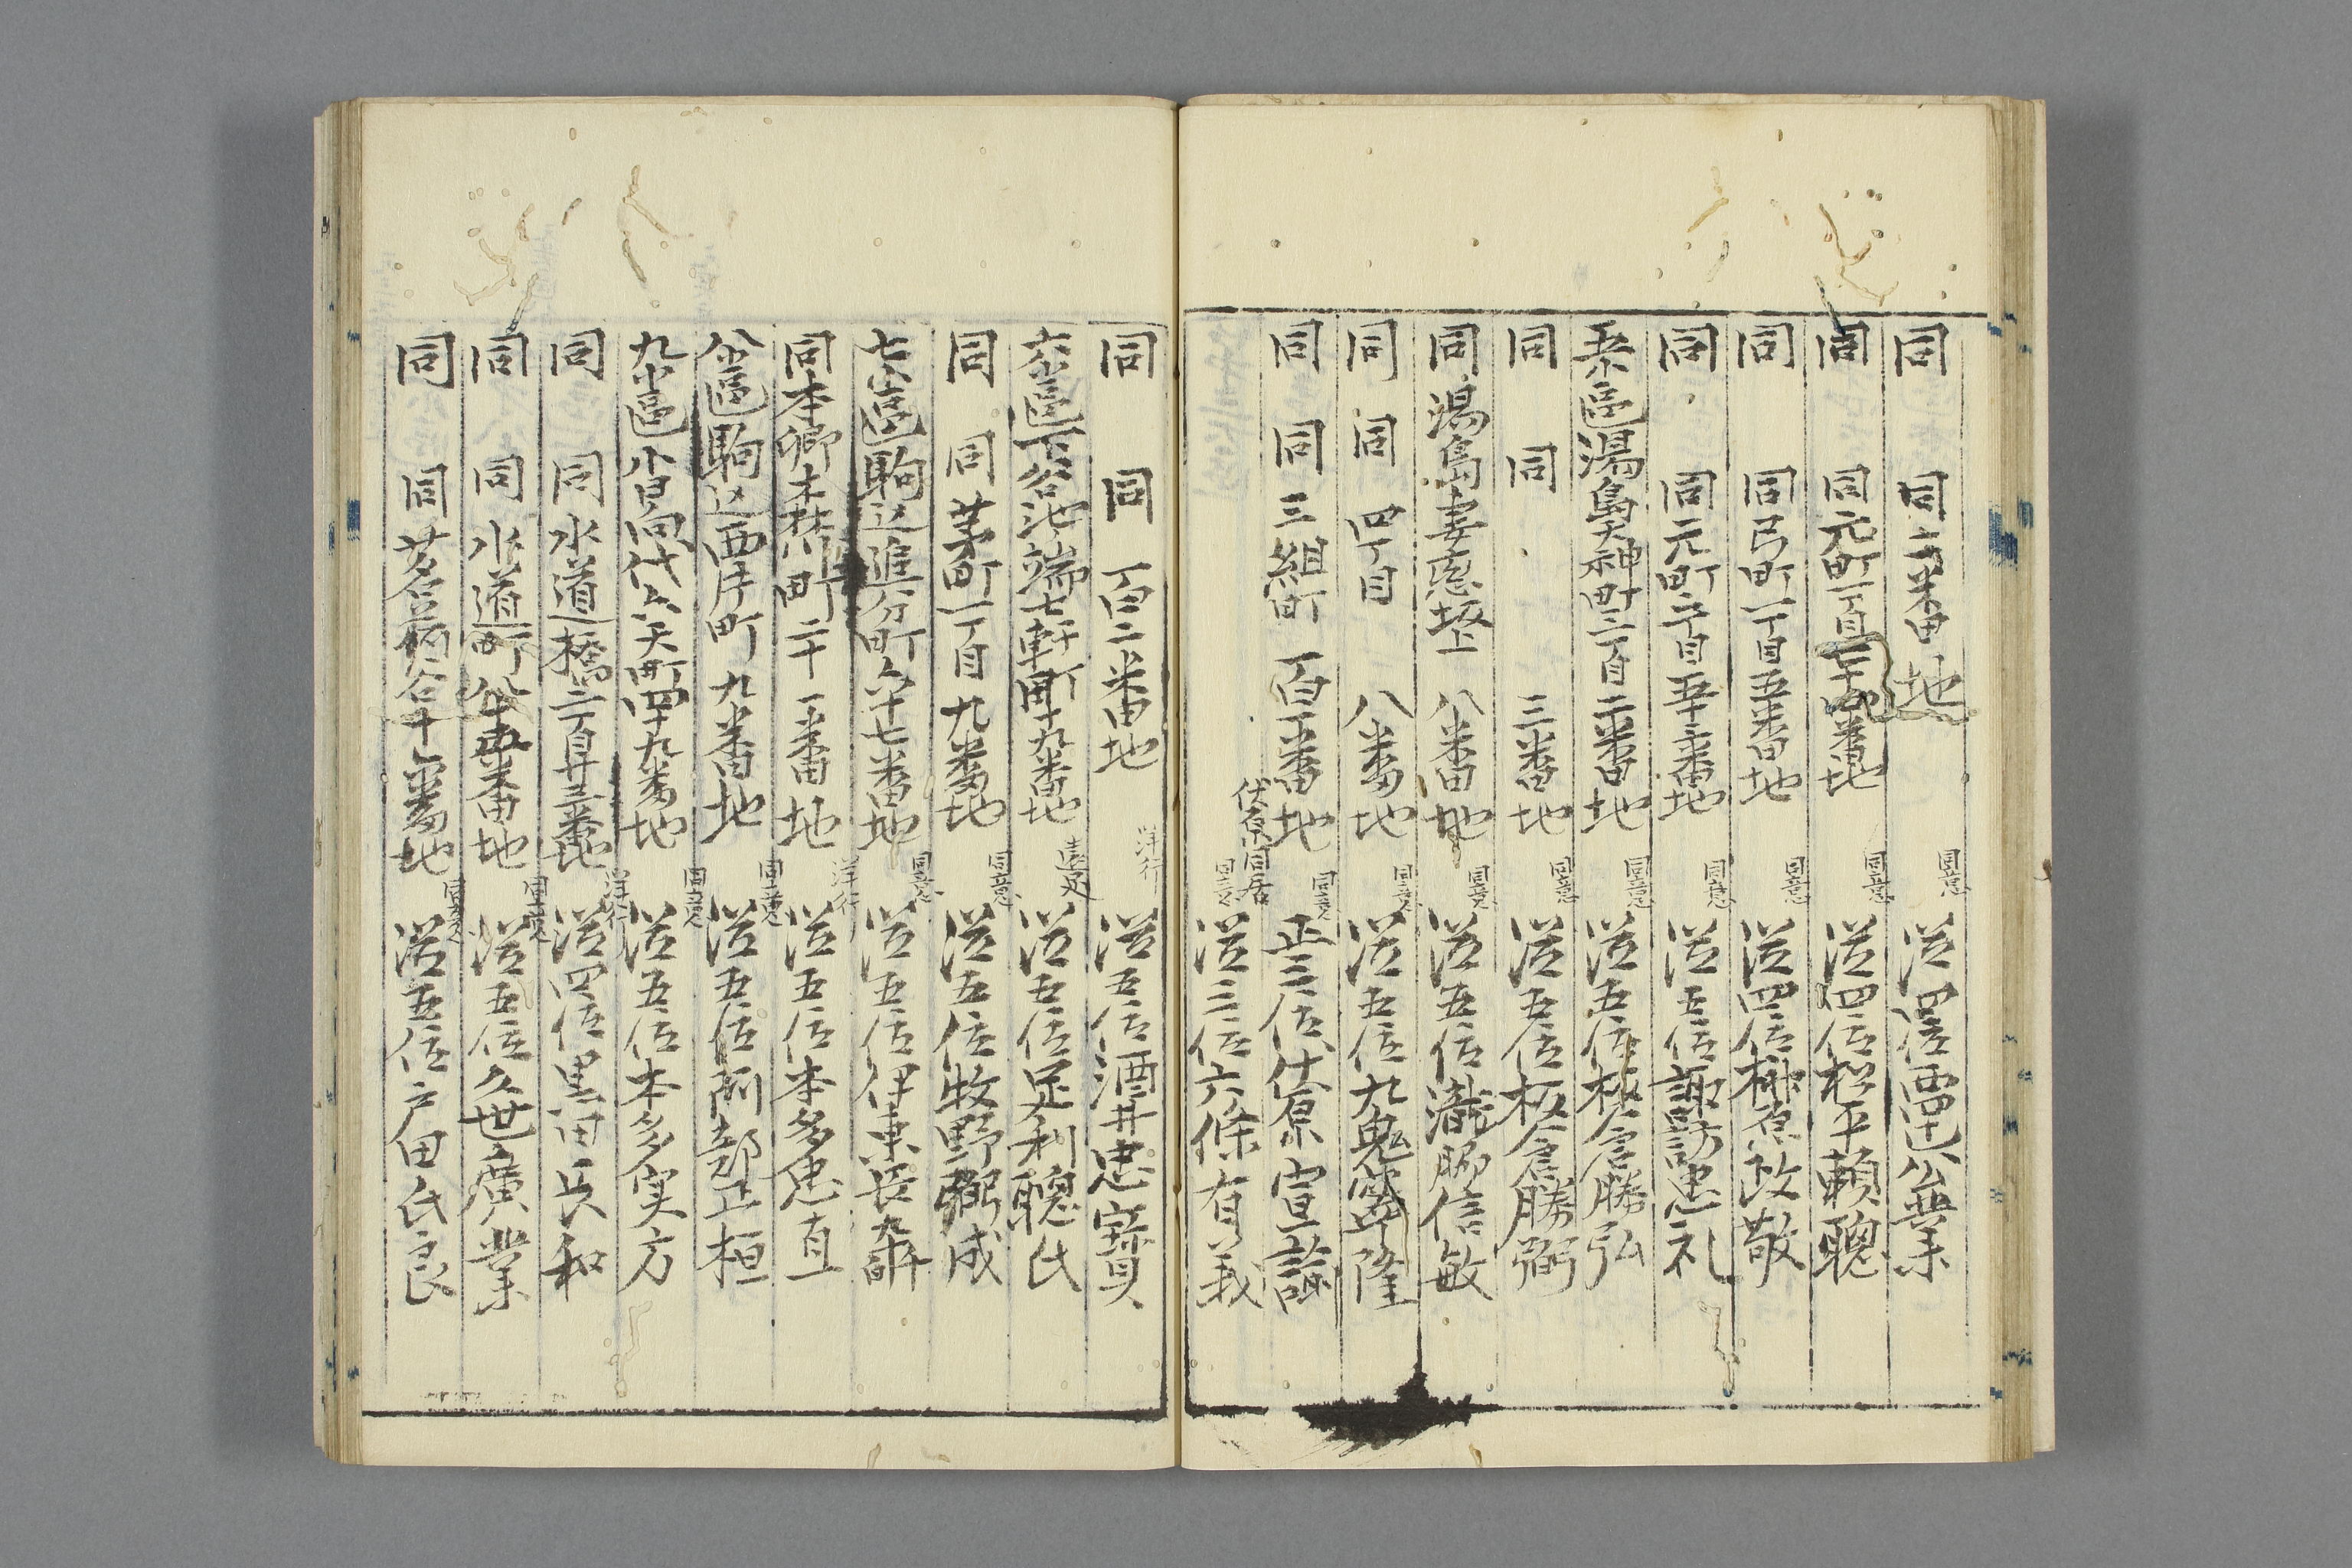 同 同 六番地 同意 従四位西四辻公業
同 同元町一丁目 番地 同意 従四位松平頼聰
同 同弓町一丁目五番地 同意 従四位榊原政敬
同 同元町二丁目五十二番地 同意 従五位諏訪忠礼
五小區湯島天神町二丁目二番地 同意 従五位板倉勝弘
同 同 三番地 同意 従五位板倉勝弼
同 湯島妻恋坂上 八番地 同意 従五位瀧脇信敏
同 同 四丁目 八番地 同意 従五位九鬼隆
同 同 三組町 百一番地 同意 正三位伏原宣諭
伏原同居 同意 従三位六條有義
同 同 百二番地 洋行 従五位酒井忠寶
六小區下谷池ノ端七軒町四十九番地 遠足 従五位足利聰氏
同 同 茅町一丁目 九番地 同意 従五位牧野弼成
七小區駒込追分町六十七番地 同意 従五位伊東長
同本郷森川町二十一番地 洋行 従五位本多忠直
八小區駒込西片町 九番地 同意 従五位阿部正桓
九小區小日向代六天町四十九番地 同意 従五位本多実方
同 同 水道橋二丁目廿三番地 洋行 従四位黒田長和
同 同 水道町八十五番地 同意 従五位久世廣業
同 同茗荷谷十六番地 同意 従五位戸田氏良